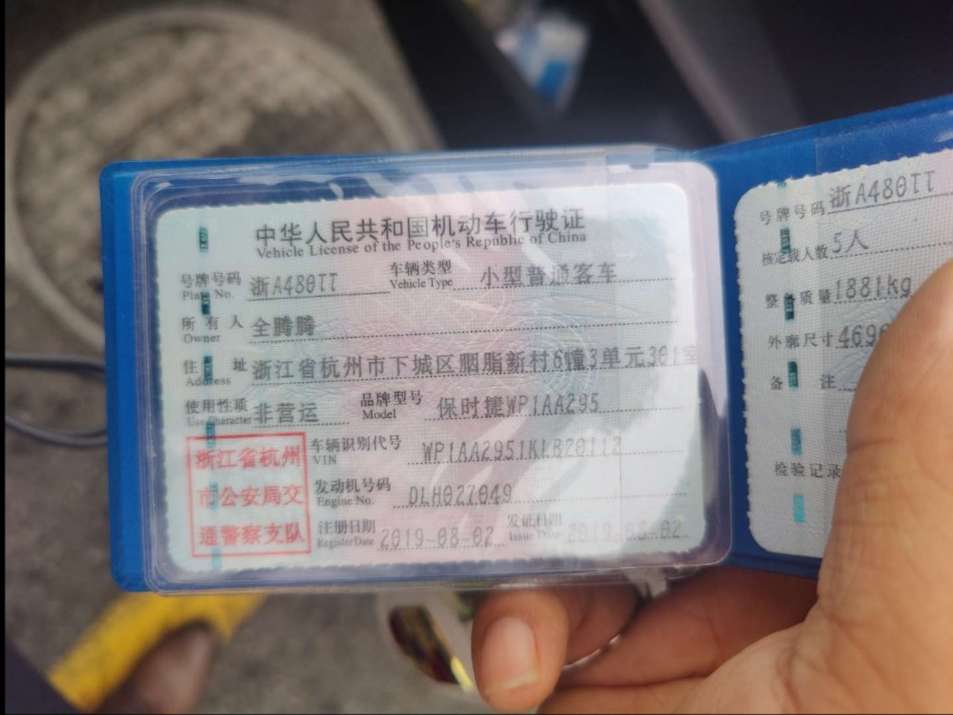 中华人民共和国机动车行驶证
Vehicle License of the People's Republic of China
号牌号码 浙A480TT 车辆类型 小型普通客车
Plate No. Vehicle Type
所有人 全腾腾
Owner
住址 浙江省杭州市下城区胭脂新村6幢3单元301室
Address
使用性质 非营运 品牌型号 保时捷WP1AA295
Use Character Model
浙江省杭州
市公安局交
通警察支队
车辆识别代号
VIN
发动机号码 DLH027049
Engine No.
注册日期 2019-08-02 发证日期 2019-08-02
Register Date Issue Date
号牌号码 浙A480TT
核定载人数 5人
整备质量 1881kg
外廓尺寸 469
备注
检验记录